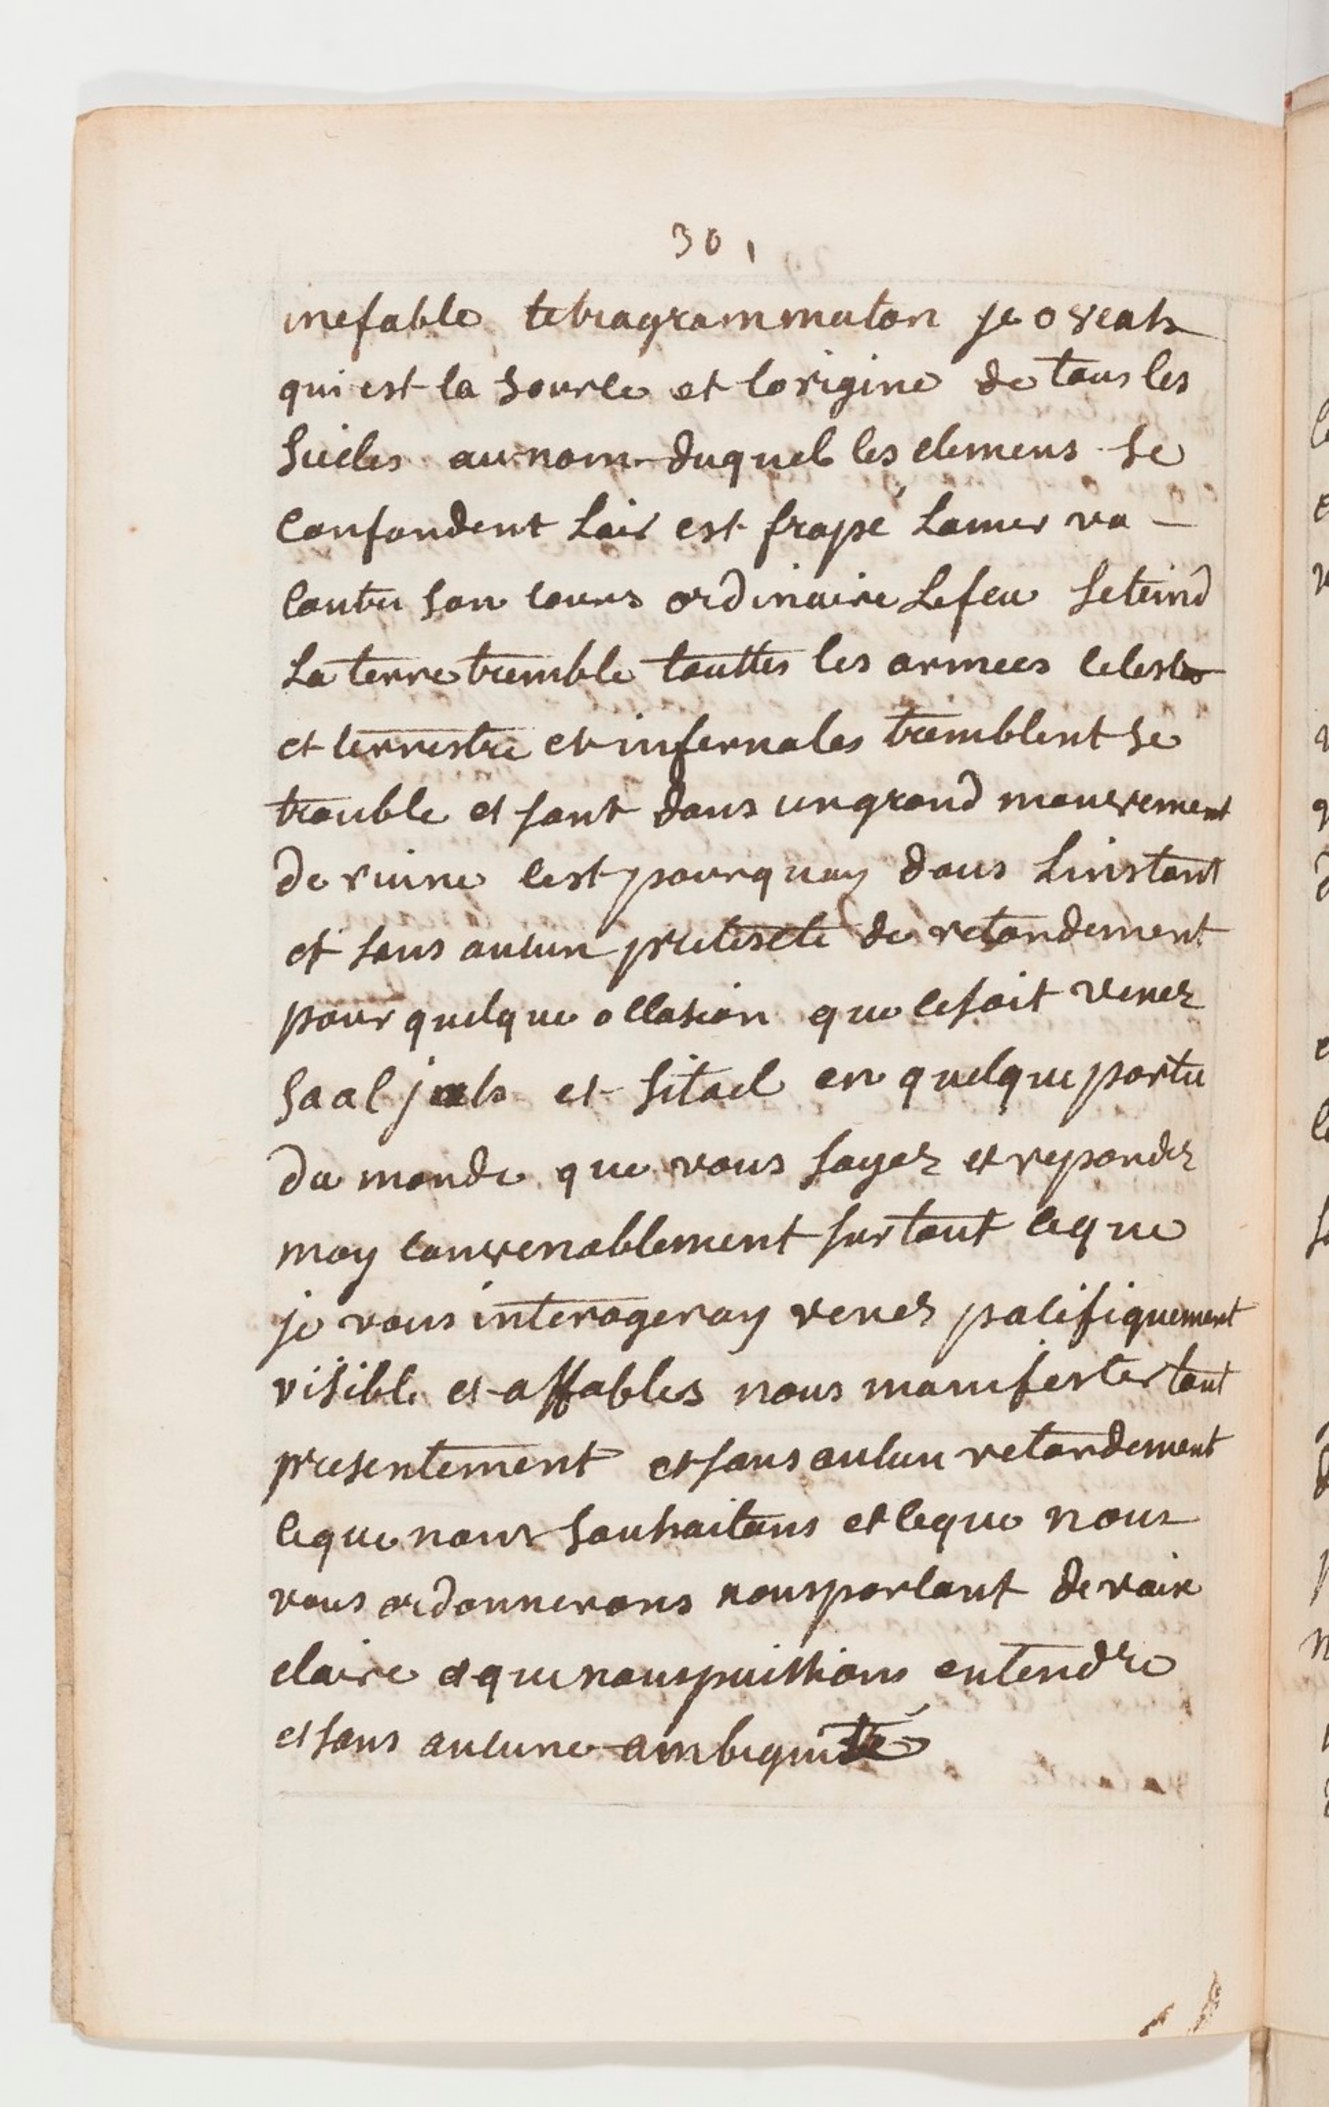 30,
inefable tetragrammaton jeoveah
qui est la source et lorigine de tous les
siecles au nom duquel les elemens se
confondent Lair est frapé Lamer va -
contre son cours ordinaire Lefeu seteind
La terre tremble touttes les armees celestes
et terrestre et infernales tremblent se
trouble et sont dans un grand mouvement
de ruine cest pourquoy dans Linstant
et sans aucun pretexte de retardement
pour quelque occasion que cesoit venez
saal jab et sitael en quelque partie
du monde que vous soyez et repondez
moy convenablement sur tout ceque
je vous interogeray venez pacifiquement
visible et affables nous manifester tout
presentement et sans aucun retardement
ceque nous souhaitons et ceque nous
vous ordonnerons nous parlant de voix
claire et que nous puissions entendre
et sans aucune ambiguité